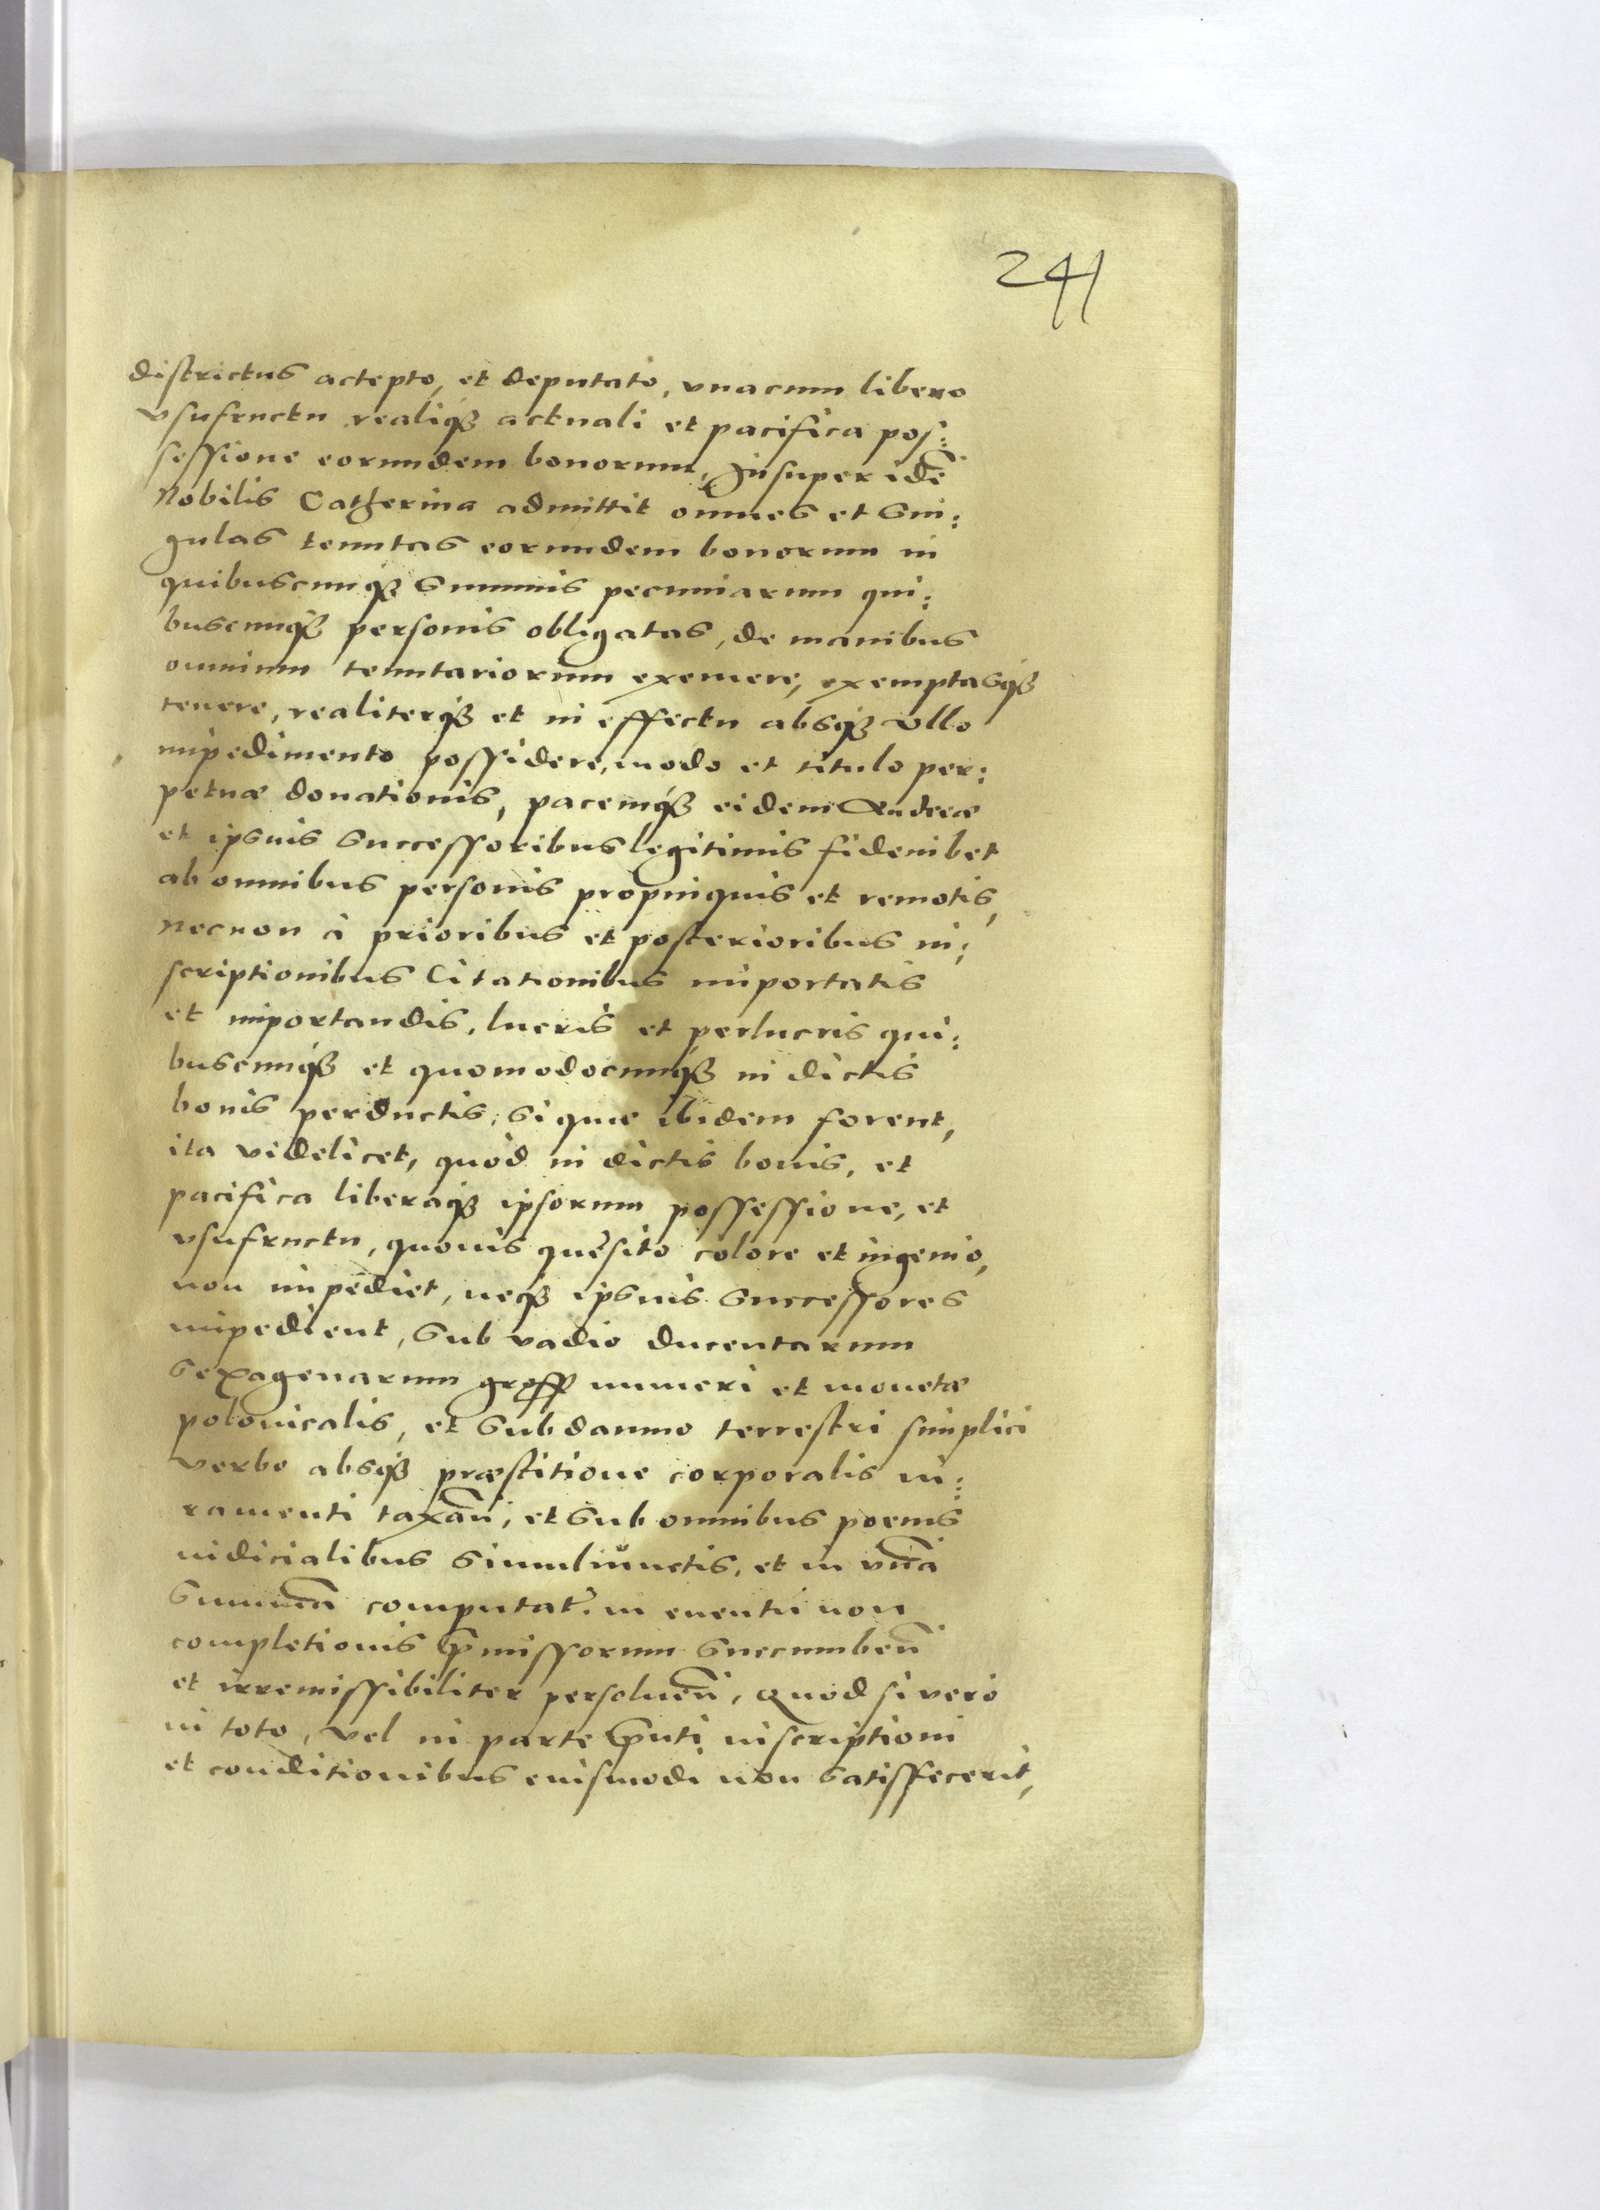 241
districtus accepto, et deputato, vnacum libero
vsufructu realiq́ꝫ actuali et pacifica pos:
sessione eorundem bonorum, Insuper idē
Nobilis Catherina admittit omnes et sin:
gulas tenutas eorundem bonorum in
quibuscunq́ꝫ summis pecuniarum qui:
buscunq́ꝫ personis obligatas, de manibus
omnium tenutariorum exemere, exemptasq́ꝫ
tenere, realiterq́ꝫ et in effectu absq́ꝫ vllo
impedimento possidere, modo et titulo per:
petuæ donationis, pacemq́ꝫ eidem Andreæ
et ipsuis successoribus legitimis fideiubet
ab omnibus personis propinquis et remotis,
necnon à prioribus et posterioribus in:
scriptionibus Citationibus importatis
et importandis, lucris et perlucris qui:
buscunq́ꝫ et quomodocunq́ꝫ in dictis
bonis perductis, si quæ ibidem forent,
ita videlicet, quòd in dictis bonis, et
pacifica liberaq́ꝫ ipsorum possessione, et
vsufructu, quouis quesito colore et ingenio,
non impediet, neq́ꝫ ipsuis successores
impedient, sub vadio ducentarum
sexagenarum gross numeri et monetæ
polonicalis, et sub damno terrestri simplici
verbo absq́ꝫ præstitione corporalis iu:
ramenti taxan̄, et sub omnibus poenis
iudicialibus simuliunctis, et in vnā
summā computat̄. in euentu non
completionis p̄missorum succumben̄
et irremissibiliter persoluen̄, Quod si vero
in toto, vel in parte p̄nti inscriptioni
et conditionibus eiusmodi non satisfecerit,